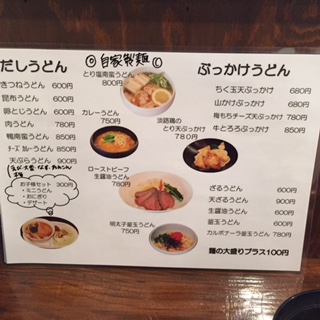 ◎自家製麺◎
だしうどん
きつねうどん 600円
昆布うどん 600円
卵とじうどん 650円
肉うどん 780円
鴨南蛮うどん 850円
チーズカレーうどん 850円
天ぷらうどん 900円
お子様セット 300円
・ミニうどん
・おにぎり
・デザート
とり塩南蛮うどん
800円
カレーうどん
750円
淡路鶏の
とり天ぶっかけ
780円
ローストビーフ
生醤油うどん
780円
明太子釜玉うどん
750円
ぶっかけうどん
ちく玉天ぶっかけ 680円
山かけぶっかけ 680円
梅もちチーズ天ぶっかけ 780円
牛とろろぶっかけ 850円
ざるうどん 600円
天ざるうどん 900円
生醤油うどん 600円
釜玉うどん 600円
カルボナーラ釜玉うどん 780円
麺の大盛りプラス100円